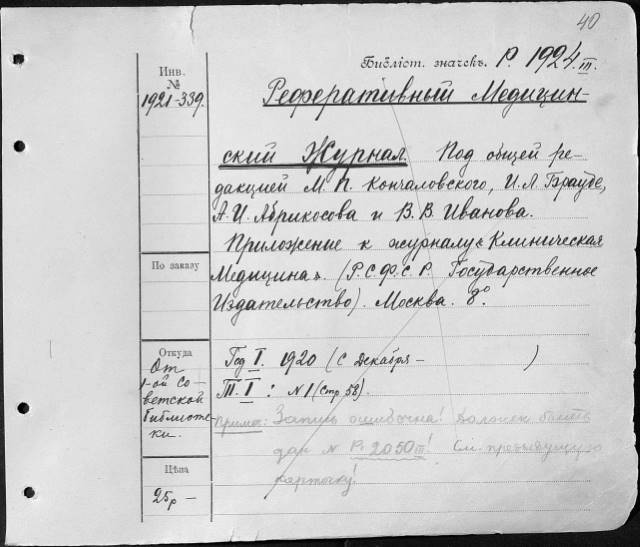 40
Библіот. значекъ. Р. 1924.III.
Инв.
№
1921-339.
Реферативный Медицин-
ский Журнал. Под общей ре-
дакцией М. П. Кончаловского, И. Л. Брауде,
А. И. Абрикосова и В. В. Иванова.
Приложение к журналу "Клиническая
Медицина". (Р.С.Ф.С.Р. Государственное
Издательство). Москва. 8°.
По заказу
Откуда
От
1-ой Со-
ветской
библиоте-
ки.
Год I. 1920 (с Декабря - )
Т. I : N 1 (стр 58).
Примеч: Запись ошибочна! Должен быть
дан N Р. 2050 III! См. предыдущую
карточку!
Цѣна
25р -